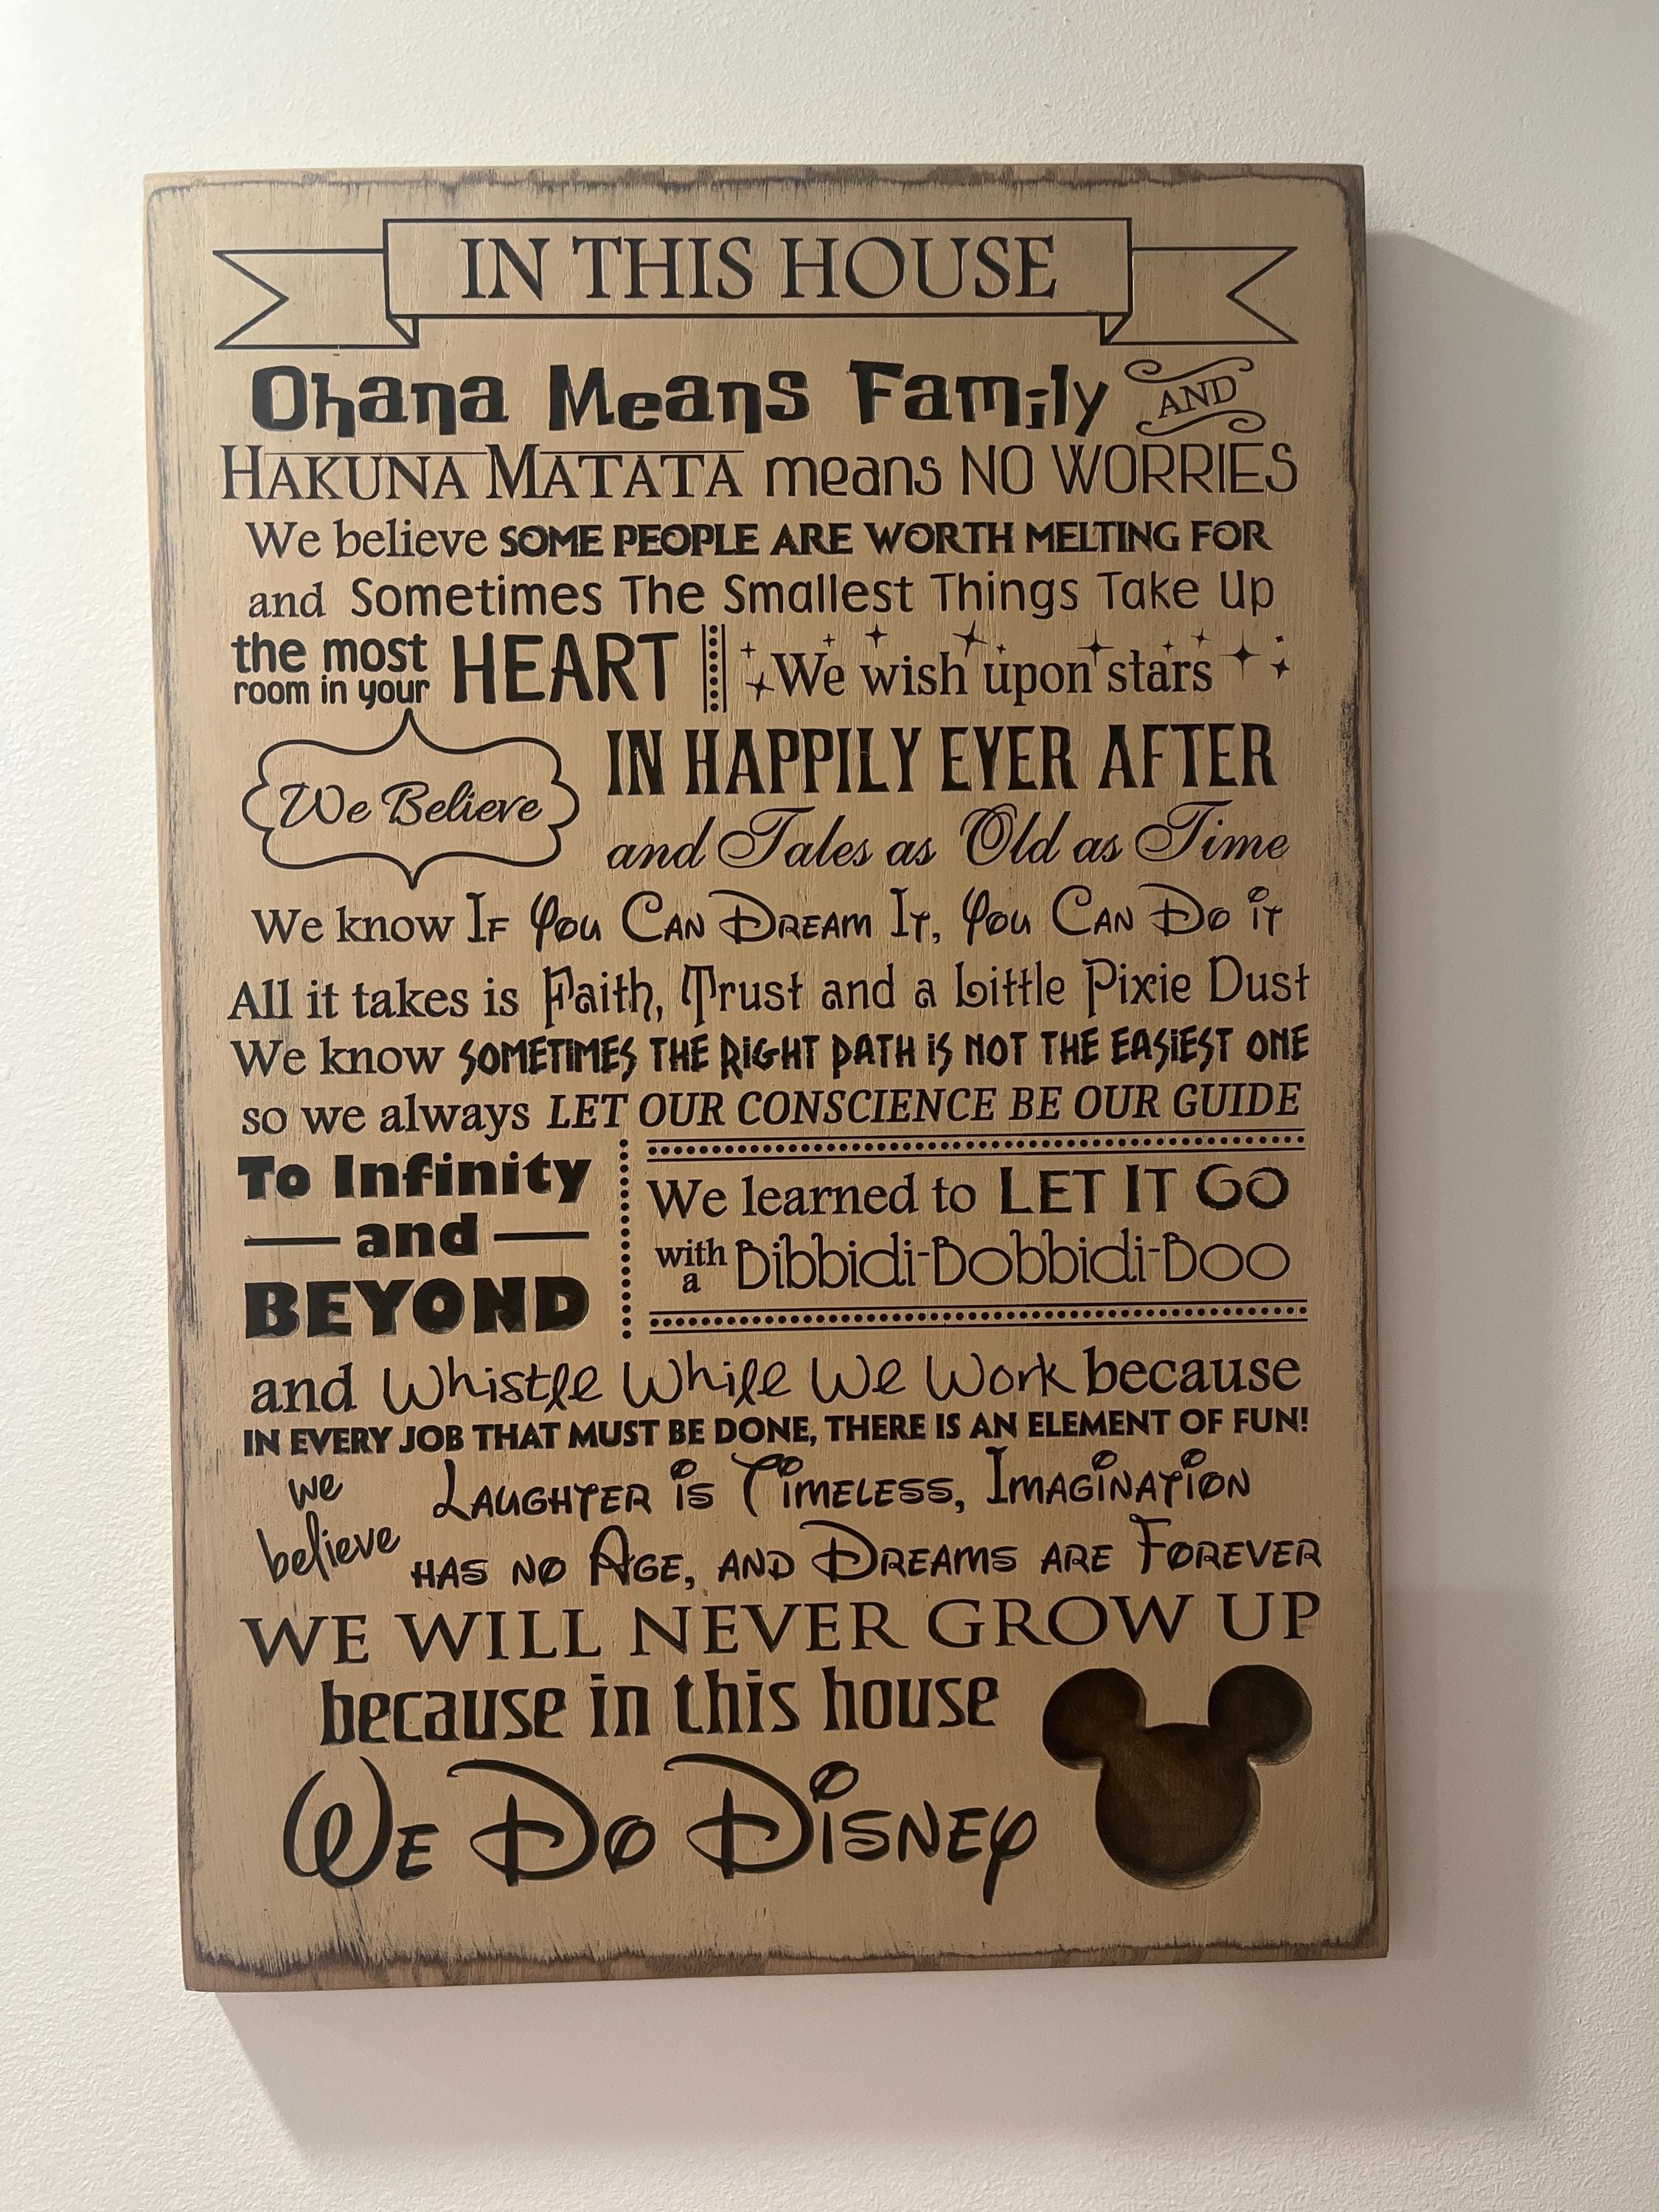 IN THIS HOUSE
Ohana Means Family AND
HAKUNA MATATA means NO WORRIES
We believe SOME PEOPLE ARE WORTH MELTING FOR
and Sometimes The Smallest Things Take Up
the most
room in your
HEART
We wish upon stars
We Believe
IN HAPPILY EVER AFTER
and Tales as Old as Time
We know IF YOU CAN DREAM IT, YOU CAN DO iT
All it takes is Faith, Trust and a Little Pixie Dust
We know SOMETIMES THE RIGHT PATH iS NOT THE EASIEST ONE
so we always LET OUR CONSCIENCE BE OUR GUIDE
To Infinity
and
BEYOND
We learned to LET IT GO
with
a
Bibbidi-Bobbidi-Boo
and Whistle While We Work because
IN EVERY JOB THAT MUST BE DONE, THERE IS AN ELEMENT OF FUN!
we
believe
LAUGHTER iS TiMELESS, IMAGiNATiON
HAS NO AGE, AND DREAMS ARE FOREVER
WE WILL NEVER GROW UP
because in this house
WE DO DiSNEY